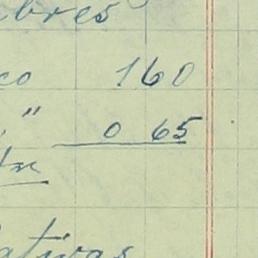 bres
co 160
" 0 65
ativas